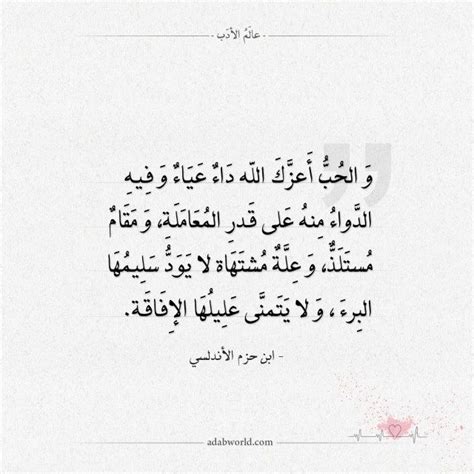 - عالَمُ الأدَب -
وَ الحُبُّ أَعزَّكَ الله دَاءٌ عَيَاءٌ وَ فِيهِ
الدَّواءُ مِنهُ عَلى قَدرِ المُعَامَلَةِ، وَ مَقَامٌ
مُستَلَذٌّ، وَ عِلَّةٌ مُشتَهَاة لا يَوَدُّ سَلِيمُهَا
البِرءَ ، وَ لا يَتَمنَّى عَلِيلُهَا الإِفَاقَة.
- ابن حزم الأندلسي
adabworld.com